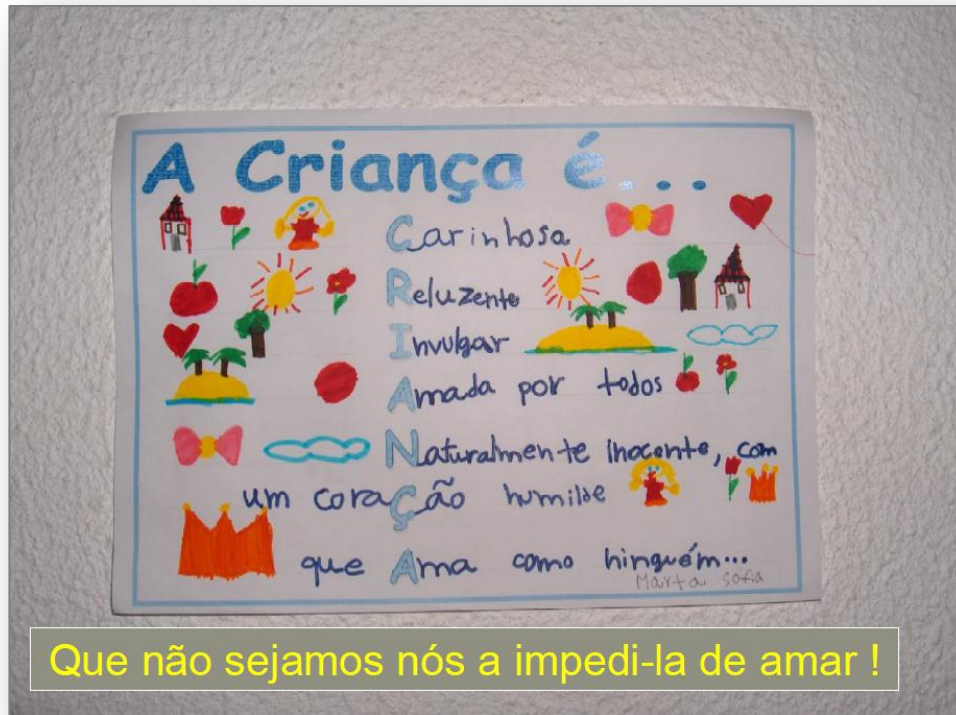 A Criança é...
Carinhosa
Reluzente
Invulgar
Amada por todos
Naturalmente inocente, com
um coraÇão humilde
que Ama como ninguém...
Marta Sofia
Que não sejamos nós a impedi-la de amar !